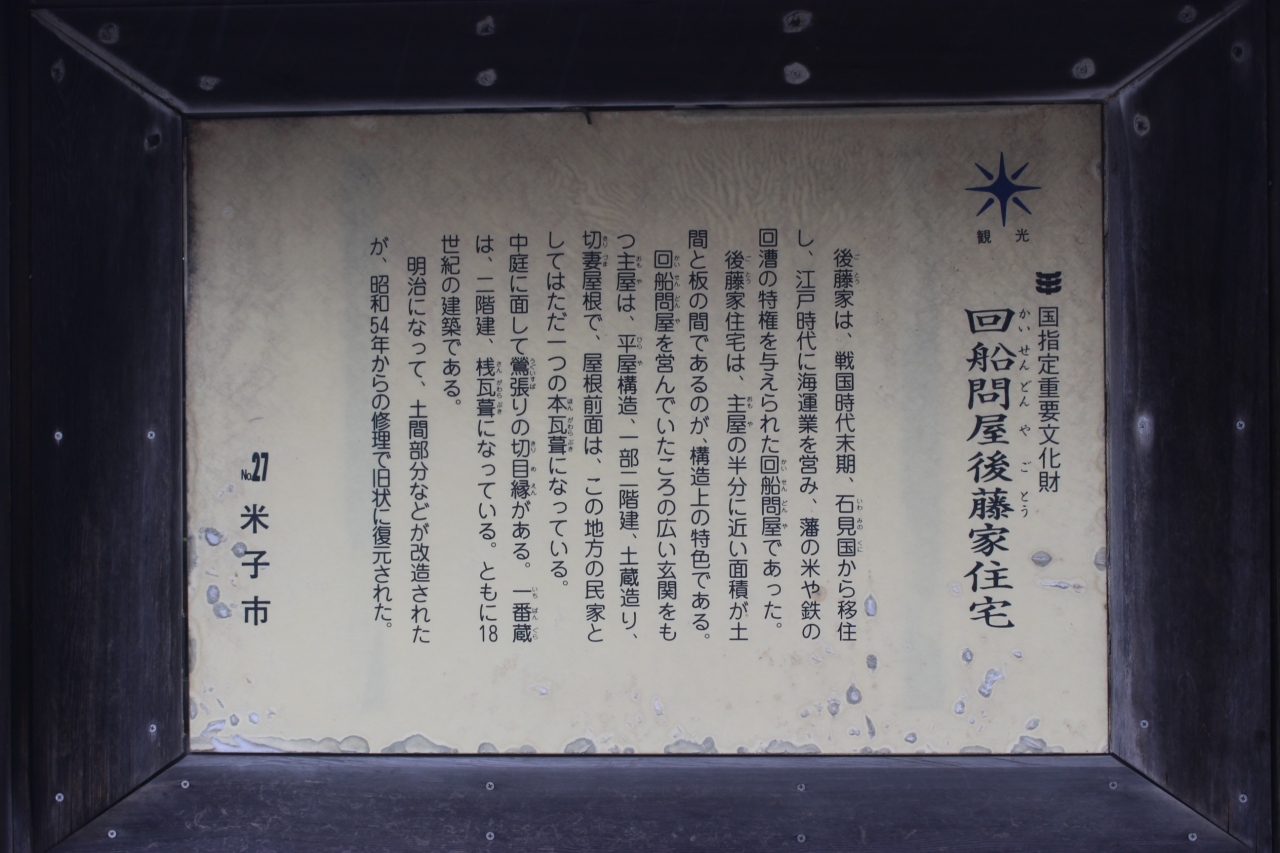 観光
国指定重要文化財
回船問屋後藤家住宅
かいせんどんやごとう
後藤家は、戦国時代末期、石見国から移住
し、江戸時代に海運業を営み、藩の米や鉄の
回漕の特権を与えられた回船問屋であった。
後藤家住宅は、主屋の半分に近い面積が土
間と板の間であるのが、構造上の特色である。
回船問屋を営んでいたころの広い玄関をも
つ主屋は、平屋構造、一部二階建、土蔵造り、
切妻屋根で、屋根前面は、この地方の民家と
してはただ一つの本瓦葺になっている。
中庭に面して鶯張りの切目縁がある。一番蔵
は、二階建、桟瓦葺になっている。ともに18
世紀の建築である。
明治になって、土間部分などが改造された
が、昭和54年からの修理で旧状に復元された。
No.27 米子市